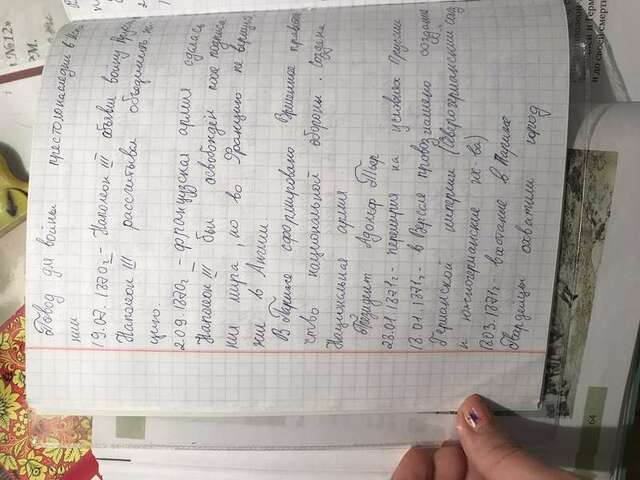 №12»
М.
Повод для войны престолонаследии в Испа
нии
19.07.1870г - Наполеон III объявил войну Прусси
Наполеон III рассчитывал объединить на
цию.
2.09.1870г - французская армия сдалась
Наполеон III был освобождён после подписа
ния мира, но во Францию не вернулся
жил в Англии.
В Париже сформировано Временное правитель
ство национальной обороны. Создана
Национальная армия
Президент Адольф Тьер
28.01.1871г - перемирие на условиях Пруссии
18.01.1871г - в Версале провозглашено создание
Германской империи (Северогерманский союз
и южногерманские гос-ва)
18.03.1871г - восстание в Париже
Гвардейцы охватили город
64
и Герм
и до своей смерти